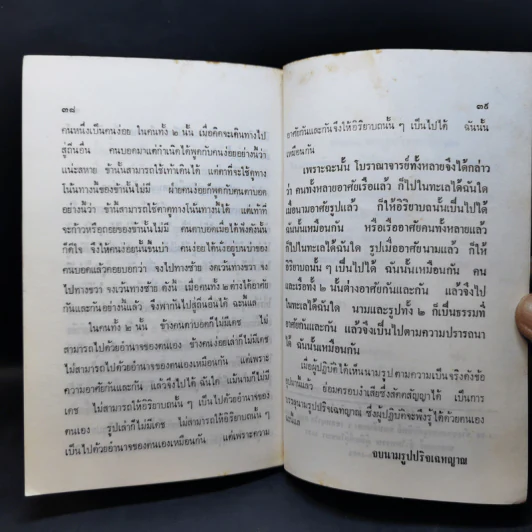 ๓๘
คนหนึ่งเป็นคนง่อย ในคนทั้ง ๒ นั้น เมื่อคิดจะเดินทางไป
สู่ถิ่นอื่น คนบอดมาแต่กำเนิดได้พูดกับคนง่อยอย่างนี้ว่า
แน่ะสหาย ข้านั้นสามารถใช้เท้าเดินได้ แต่ตาที่จะใช้ดูทาง
โน้นทางนี้ของข้านั้นไม่มี ฝ่ายคนง่อยก็พูดกับคนตาบอด
อย่างนี้ว่า ข้านี้สามารถใช้ตาดูทางโน้นทางนี้ได้ แต่เท้าที่
จะก้าวหรือถอยของข้านั้นไม่มี คนตาบอดเมื่อได้ฟังดังนั้น
ก็ดีใจ จึงให้คนง่อยนั้นขึ้นบ่า คนง่อยได้นั่งอยู่บนบ่าของ
คนบอดแล้วคอยบอกว่า จงไปทางซ้าย งดเว้นทางขวา จง
ไปทางขวา จงเว้นทางซ้าย ดังนี้ เมื่อคนทั้ง ๒ ต่างได้อาศัย
กันและกันอย่างนี้แล้ว จึงพากันไปสู่ถิ่นอื่นได้ ฉะนี้แล
ในคนทั้ง ๒ นั้น ข้างคนตาบอดก็ไม่มีเดช ไม่
สามารถไปด้วยอำนาจของตนเอง ข้างคนง่อยเล่าก็ไม่มีเดช
ไม่สามารถไปด้วยอำนาจของตนเองเหมือนกัน แต่เพราะ
ความอาศัยกันและกัน แล้วจึงไปได้ ฉันใด แม้นามก็ไม่มี
เดช ไม่สามารถให้อิริยาบถนั้น ๆ เป็นไปด้วยอำนาจของ
ตนเอง รูปเล่าก็ไม่มีเดช ไม่สามารถให้อิริยาบถนั้น ๆ
เป็นไปด้วยอำนาจของตนเองเหมือนกัน แต่เพราะความ
๓๙
อาศัยกันและกันจึงให้อิริยาบถนั้น ๆ เป็นไปได้ ฉันนั้น
เหมือนกัน
เพราะฉะนั้น โบราณาจารย์ทั้งหลายจึงได้กล่าว
ว่า คนทั้งหลายอาศัยเรือแล้ว ก็ไปในทะเลได้ฉันใด
เมื่อนามอาศัยรูปแล้ว ก็ให้อิริยาบถนั้นเป็นไปได้
ฉันนั้นเหมือนกัน หรือเรืออาศัยคนทั้งหลายแล้ว
ก็ไปในทะเลได้ฉันใด รูปเมื่ออาศัยนามแล้ว ก็ให้
อิริยาบถนั้น ๆ เป็นไปได้ ฉันนั้นเหมือนกัน คน
และเรือทั้ง ๒ นั้นต่างอาศัยกันและกัน แล้วจึงไป
ในทะเลได้ฉันใด นามและรูปทั้ง ๒ ก็เป็นธรรมที่
อาศัยกันและกัน แล้วจึงเป็นไปตามความปรารถนา
ได้ ฉันนั้นเหมือนกัน
เมื่อผู้ปฏิบัติได้เห็นนามรูปตามความเป็นจริงดังข้อ
อุปมานี้แล้ว ย่อมครอบงำเสียซึ่งสัตตสัญญาได้ เป็นการ
บรรลุนามรูปปริจเฉทญาณ ซึ่งผู้ปฏิบัติจะพึงรู้ได้ด้วยตนเอง
จบนามรูปปริจเฉทญาณ